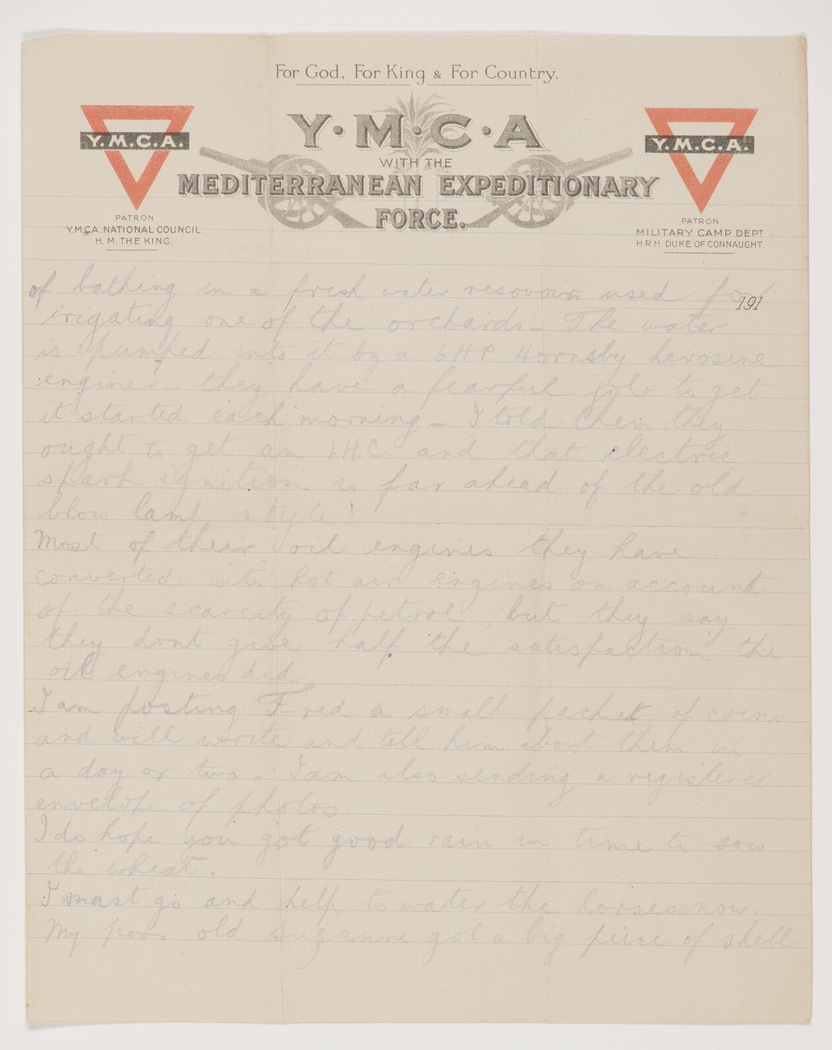 For God, For King & For Country.
Y.M.C.A.
Y·M·C·A
Y.M.C.A.
WITH THE
MEDITERRANEAN EXPEDITIONARY
FORCE.
PATRON
Y.M.C.A. NATIONAL COUNCIL.
H. M. THE KING.
PATRON
MILITARY CAMP DEPT
H.R.H. DUKE OF CONNAUGHT.
191
of bathing in a fresh water resovoir used for
irigating one of the orchards - The water
is pumped into it by a 6HP Hornsby karosine
engine - they have a fearful job to get
it started each morning - I told them they
ought to get an I.H.C and that electric
spark ignition is far ahead of the old
blow lamp style!
Most of their oil engines they have
converted into hot air engines on account
of the scarcity of petrol, but they say
they dont give half the satisfaction the
oil engines did
I am posting Fred a small packet of coins
and will write and tell him about them in
a day or two - I am also sending a registered
envelope of photos
I do hope you got good rain in time to sow
the wheat.
I must go and help to water the horses now.
My poor old Suzanne got a big piece of shell